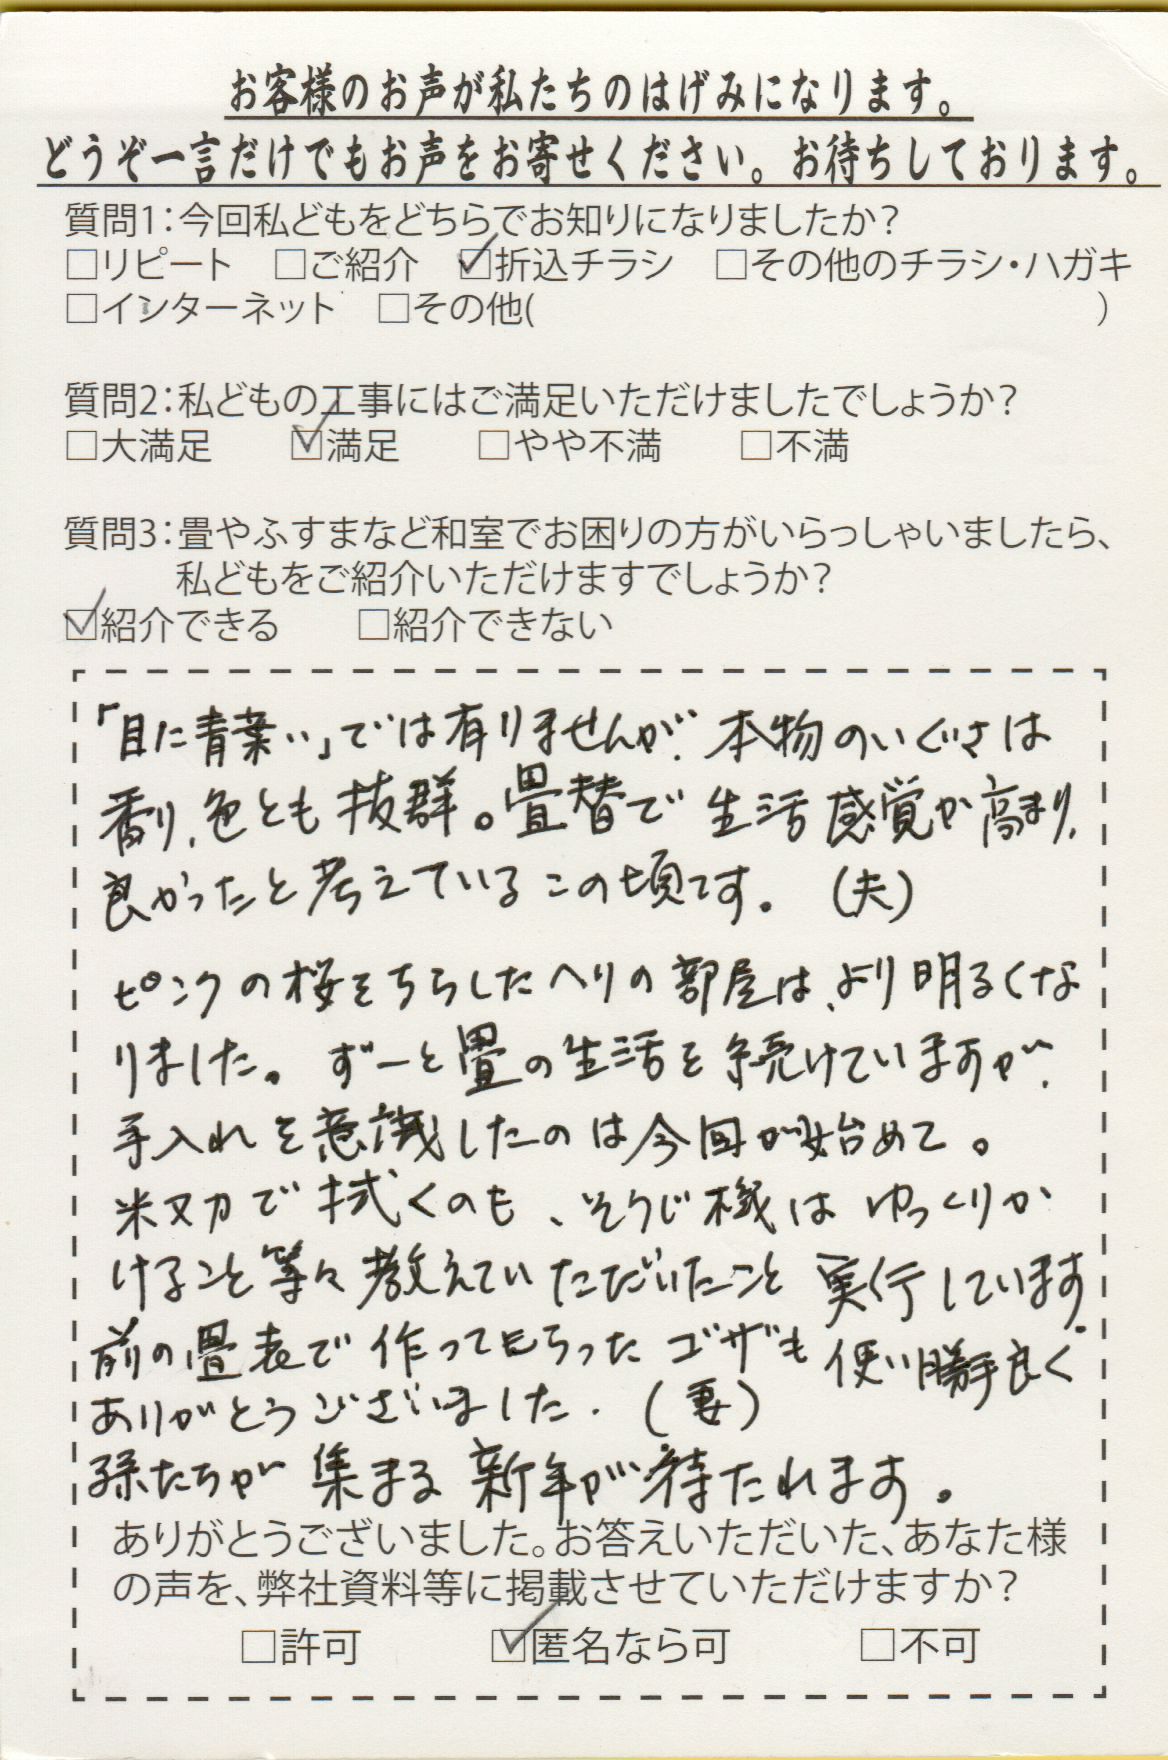 お客様のお声が私たちのはげみになります。
どうぞ一言だけでもお声をお寄せください。お待ちしております。
質問1:今回私どもをどちらでお知りになりましたか?
□リピート □ご紹介 ☑折込チラシ □その他のチラシ・ハガキ
□インターネット □その他( )
質問2:私どもの工事にはご満足いただけましたでしょうか?
□大満足 ☑満足 □やや不満 □不満
質問3:畳やふすまなど和室でお困りの方がいらっしゃいましたら、
私どもをご紹介いただけますでしょうか?
☑紹介できる □紹介できない
「目に青葉い」では有りませんが、本物のいぐさは
香り、色とも抜群。畳替で生活感覚か高まり、
良かったと考えているこの頃です。(夫)
ピンクの桜をちらしたヘリの部屋は、より明るくな
りました。ずーと畳の生活を続けていますが、
手入れを意識したのは今回が始めて。
米ヌカで拭くのも、そうじ機はゆっくりか
けること等々教えていただいたこと実行しています。
前の畳表で作ってもらったゴザも使い勝手良く
ありがとうございました。(妻)
孫たちが集まる新年が待たれます。
ありがとうございました。お答えいただいた、あなた様
の声を、弊社資料等に掲載させていただけますか?
□許可 ☑匿名なら可 □不可